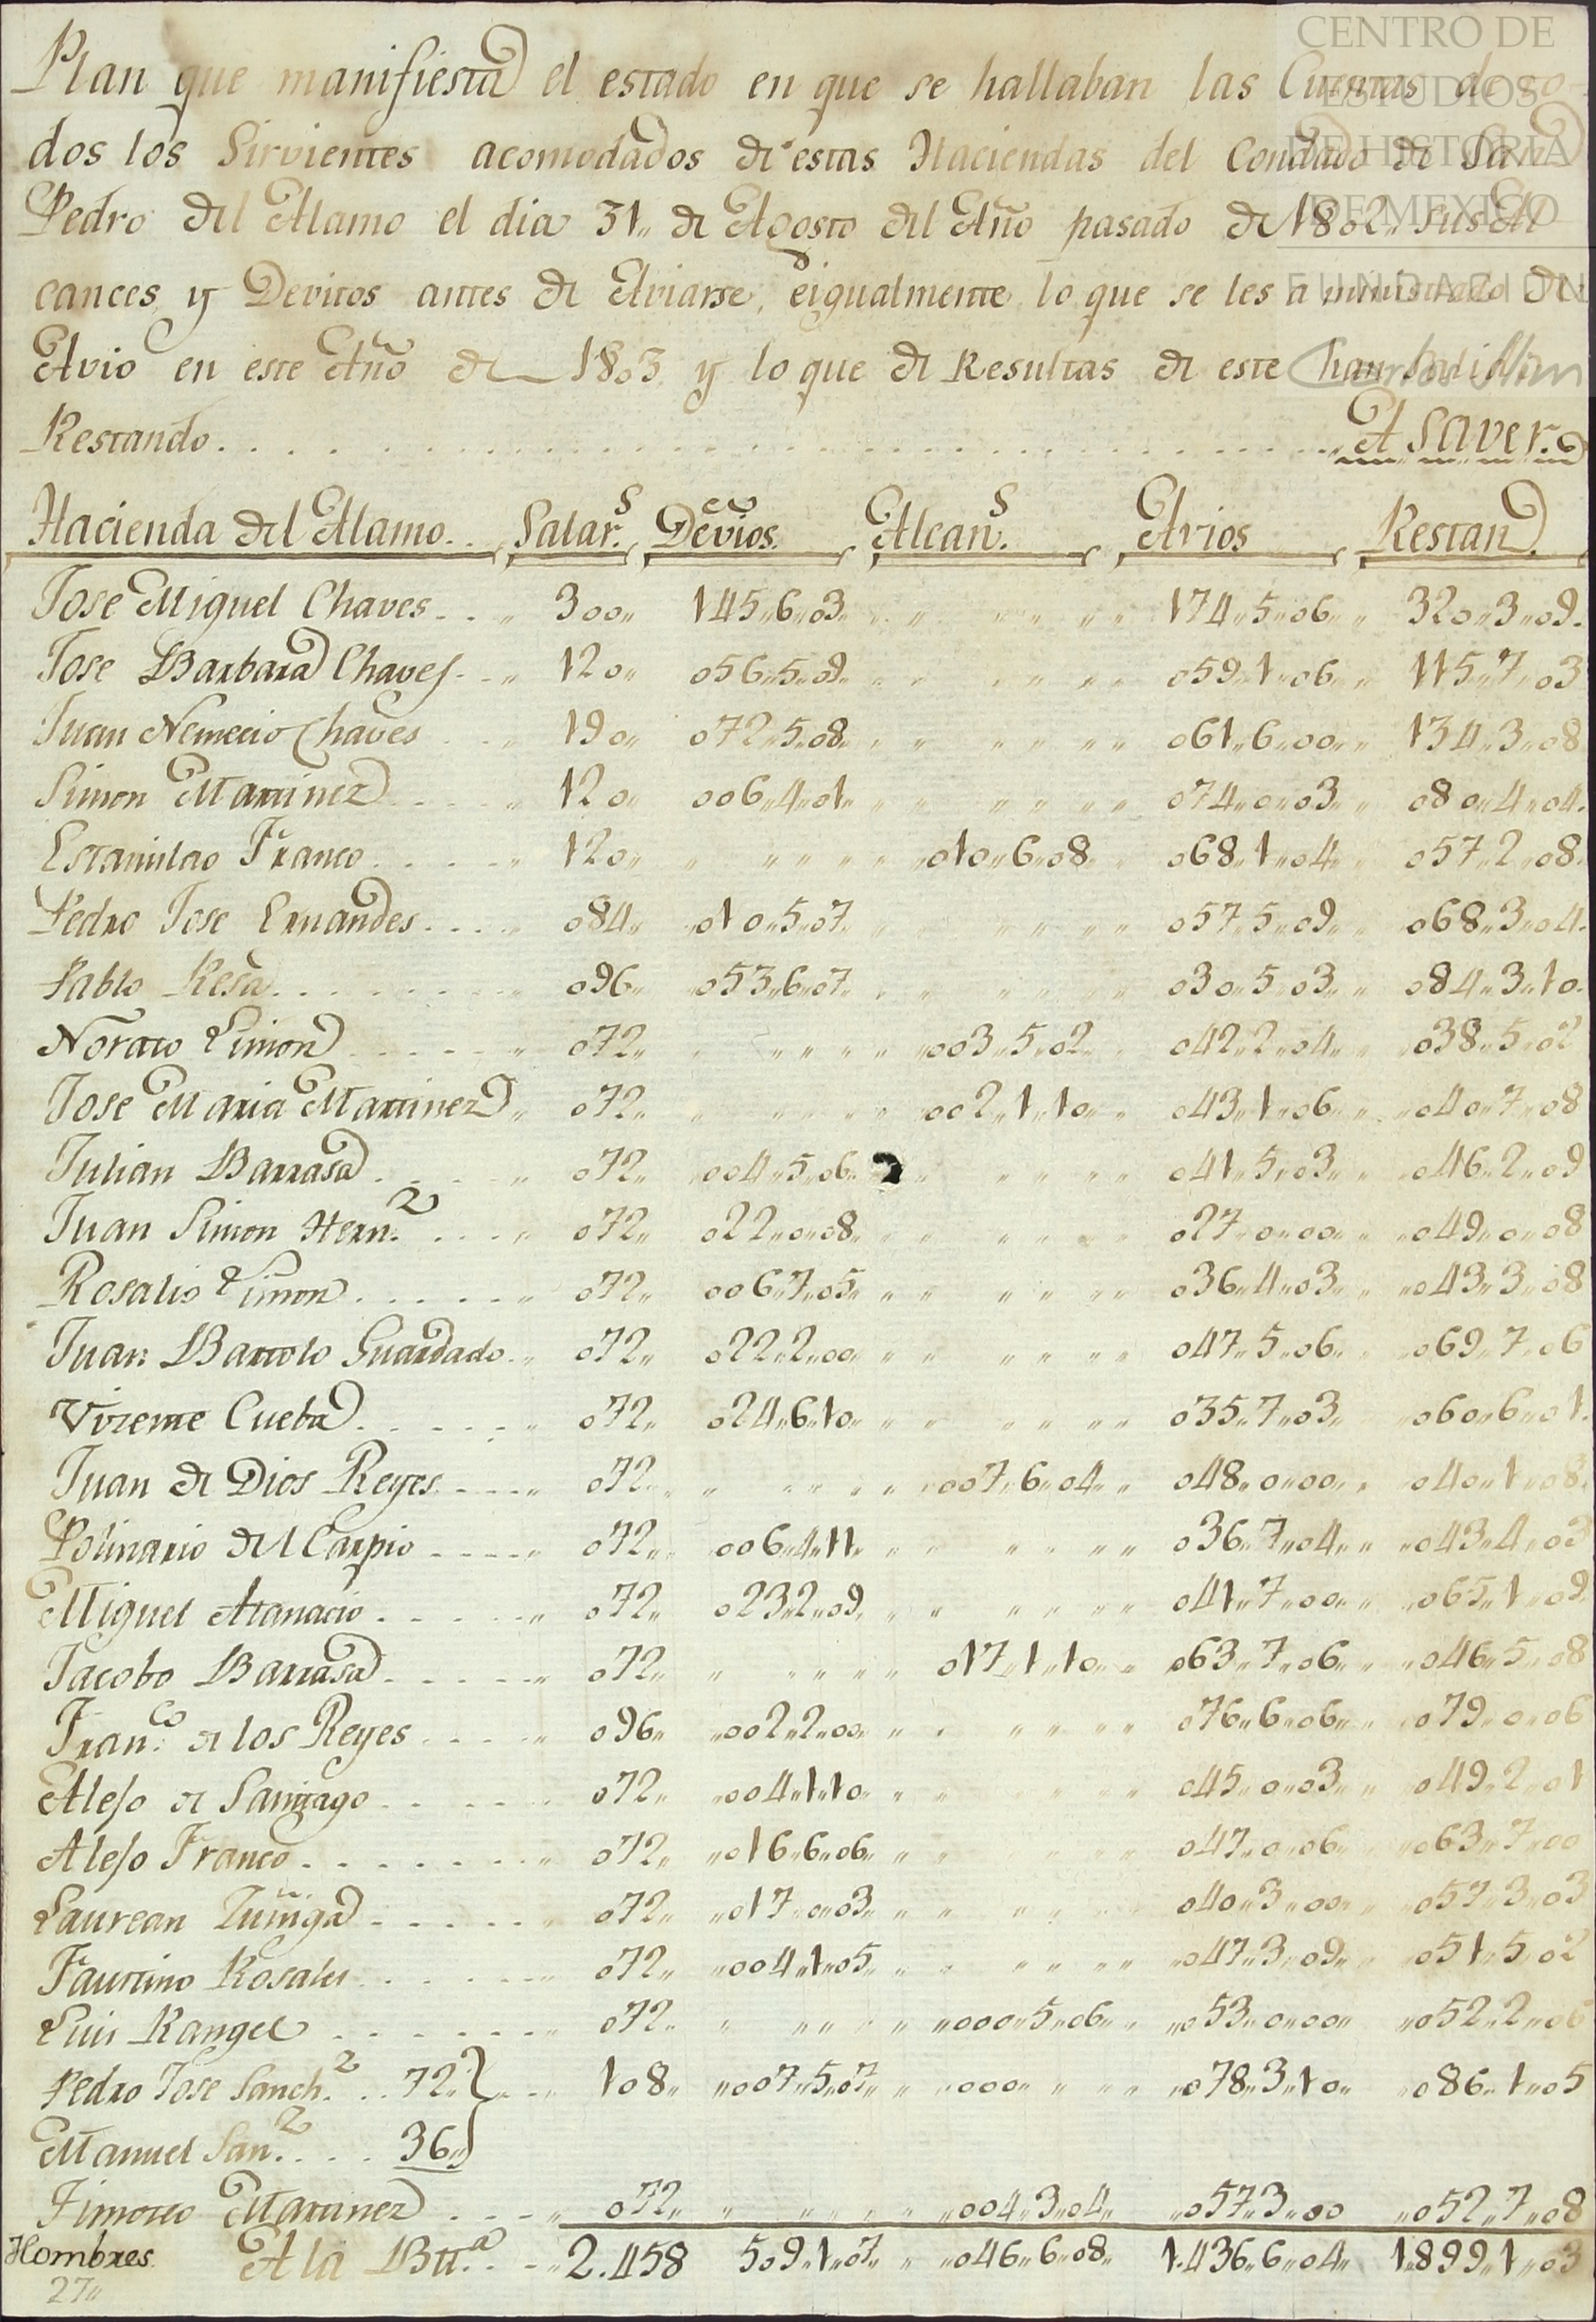 CENTRO DE
ESTUDIOS
DE HISTORIA
DE MEXICO
FUNDACION
Carlos Slim
Plan que manifiesta el estado en que se hallaban las Cuentas de to-
dos los Sirvientes acomodados de estas Haciendas del Condado de San
Pedro del Alamo el dia 31,, de Agosto del Año pasado de 1802,, sus Al
cances y Devitos antes de Aviarse, eigualmente lo que se les a ministrado de
Avio en este Año de 1803 y lo que de Resultas de este han salido
Restando. . . . . . A saver.
Hacienda del Alamo. Salar.s Devios. Alcan.s Avios Restan.
Jose Miguel Chaves. . . 300,, 145,,6,,03,, 174,,5,,06,, 320,,3,,09.
Jose Barbara Chaves. . . 120,, 056,,5,,09,, 059,,1,,06,, 115,,7,,03
Juan Nemecio Chaves 190,, 072,,5,,08,, 061,,6,,00,, 134,,3,,08
Simon Martinez . . . 120,, 006,,4,,01,, 074,,0,,03,, 080,,4,,04.
Estanislao Franco. . . . 120,, 010,,6,,08,, 068,,1,,04,, 057,,2,,08.
Pedro Jose Ernandes. . . . 084,, 010,,5,,07,, 057,,5,,09,, 068,,3,,04.
Pablo Resa. . . . 096,, 053,,6,,07,, 030,,5,,03,, 084,,3,,10.
Norato Simon . . . 072,, 003,,5,,02,, 042,,2,,04,, 038,,5,,02
Jose Maria Martinez,, 072,, 002,,1,,10,, 043,,1,,06,, 040,,7,,08
Julian Barrasa. . . 072,, 004,,5,,06,, 041,,5,,03,, 046,,2,,09
Juan Simon Hern.z . . . 072,, 022,,0,,08,, 027,,0,,00,, 049,,0,,08
Rosalio Simon. . . . 072,, 006,,7,,05,, 036,,4,,03,, 043,,3,,08
Juan Bartolo Guardado. 072,, 022,,2,,00,, 047,,5,,06,, 069,,7,,06
Vizente Cueba. . . . 072,, 024,,6,,10,, 035,,7,,03,, 060,,6,,01.
Juan de Dios Reyes. . . . 072,, 007,,6,,04,, 048,,0,,00,, 040,,1,,08.
Polinario del Carpio . . . . 072,, 006,,4,,11,, 036,,7,,04,, 043,,4,,03
Miguel Atanacio . . . . 072,, 023,,2,,09,, 041,,7,,00,, 065,,1,,09
Jacobo Barrasa. . . . 072,, 017,,1,,10,, 063,,7,,06,, 046,,5,,08
Fran.co de los Reyes . . . . 096,, 002,,2,,00,, 076,,6,,06,, 079,,0,,06
Alejo de Santiago . . . . 072,, 004,,1,,10,, 045,,0,,03,, 049,,2,,01
Alejo Franco. . . . 072,, 016,,6,,06,, 047,,0,,06,, 063,,7,,00
Laurean Zuñiga . . . . 072,, 017,,0,,03,, 040,,3,,00,, 057,,3,,03
Faustino Rosales . . . . 072,, 004,,1,,05,, 047,,3,,09,, 051,,5,,02
Luis Rangel . . . . 072,, 000,,5,,06,, 053,,0,,00,, 052,,2,,06
Pedro Jose Sanch.z . . 72,, } . . 108,, 007,,5,,07,, 000,, 078,,3,,10,, 086,,1,,05
Manuel San.z . . . 36,, }
Timoteo Martinez . . . 072,, 004,,3,,04,, 057,,3,,00 052,,7,,08
Hombres. A la Bta. . . 2.458 509,,1,,07,, 046,,6,,08,, 1.436,,6,,04,, 1.899,,1,,03
27,,